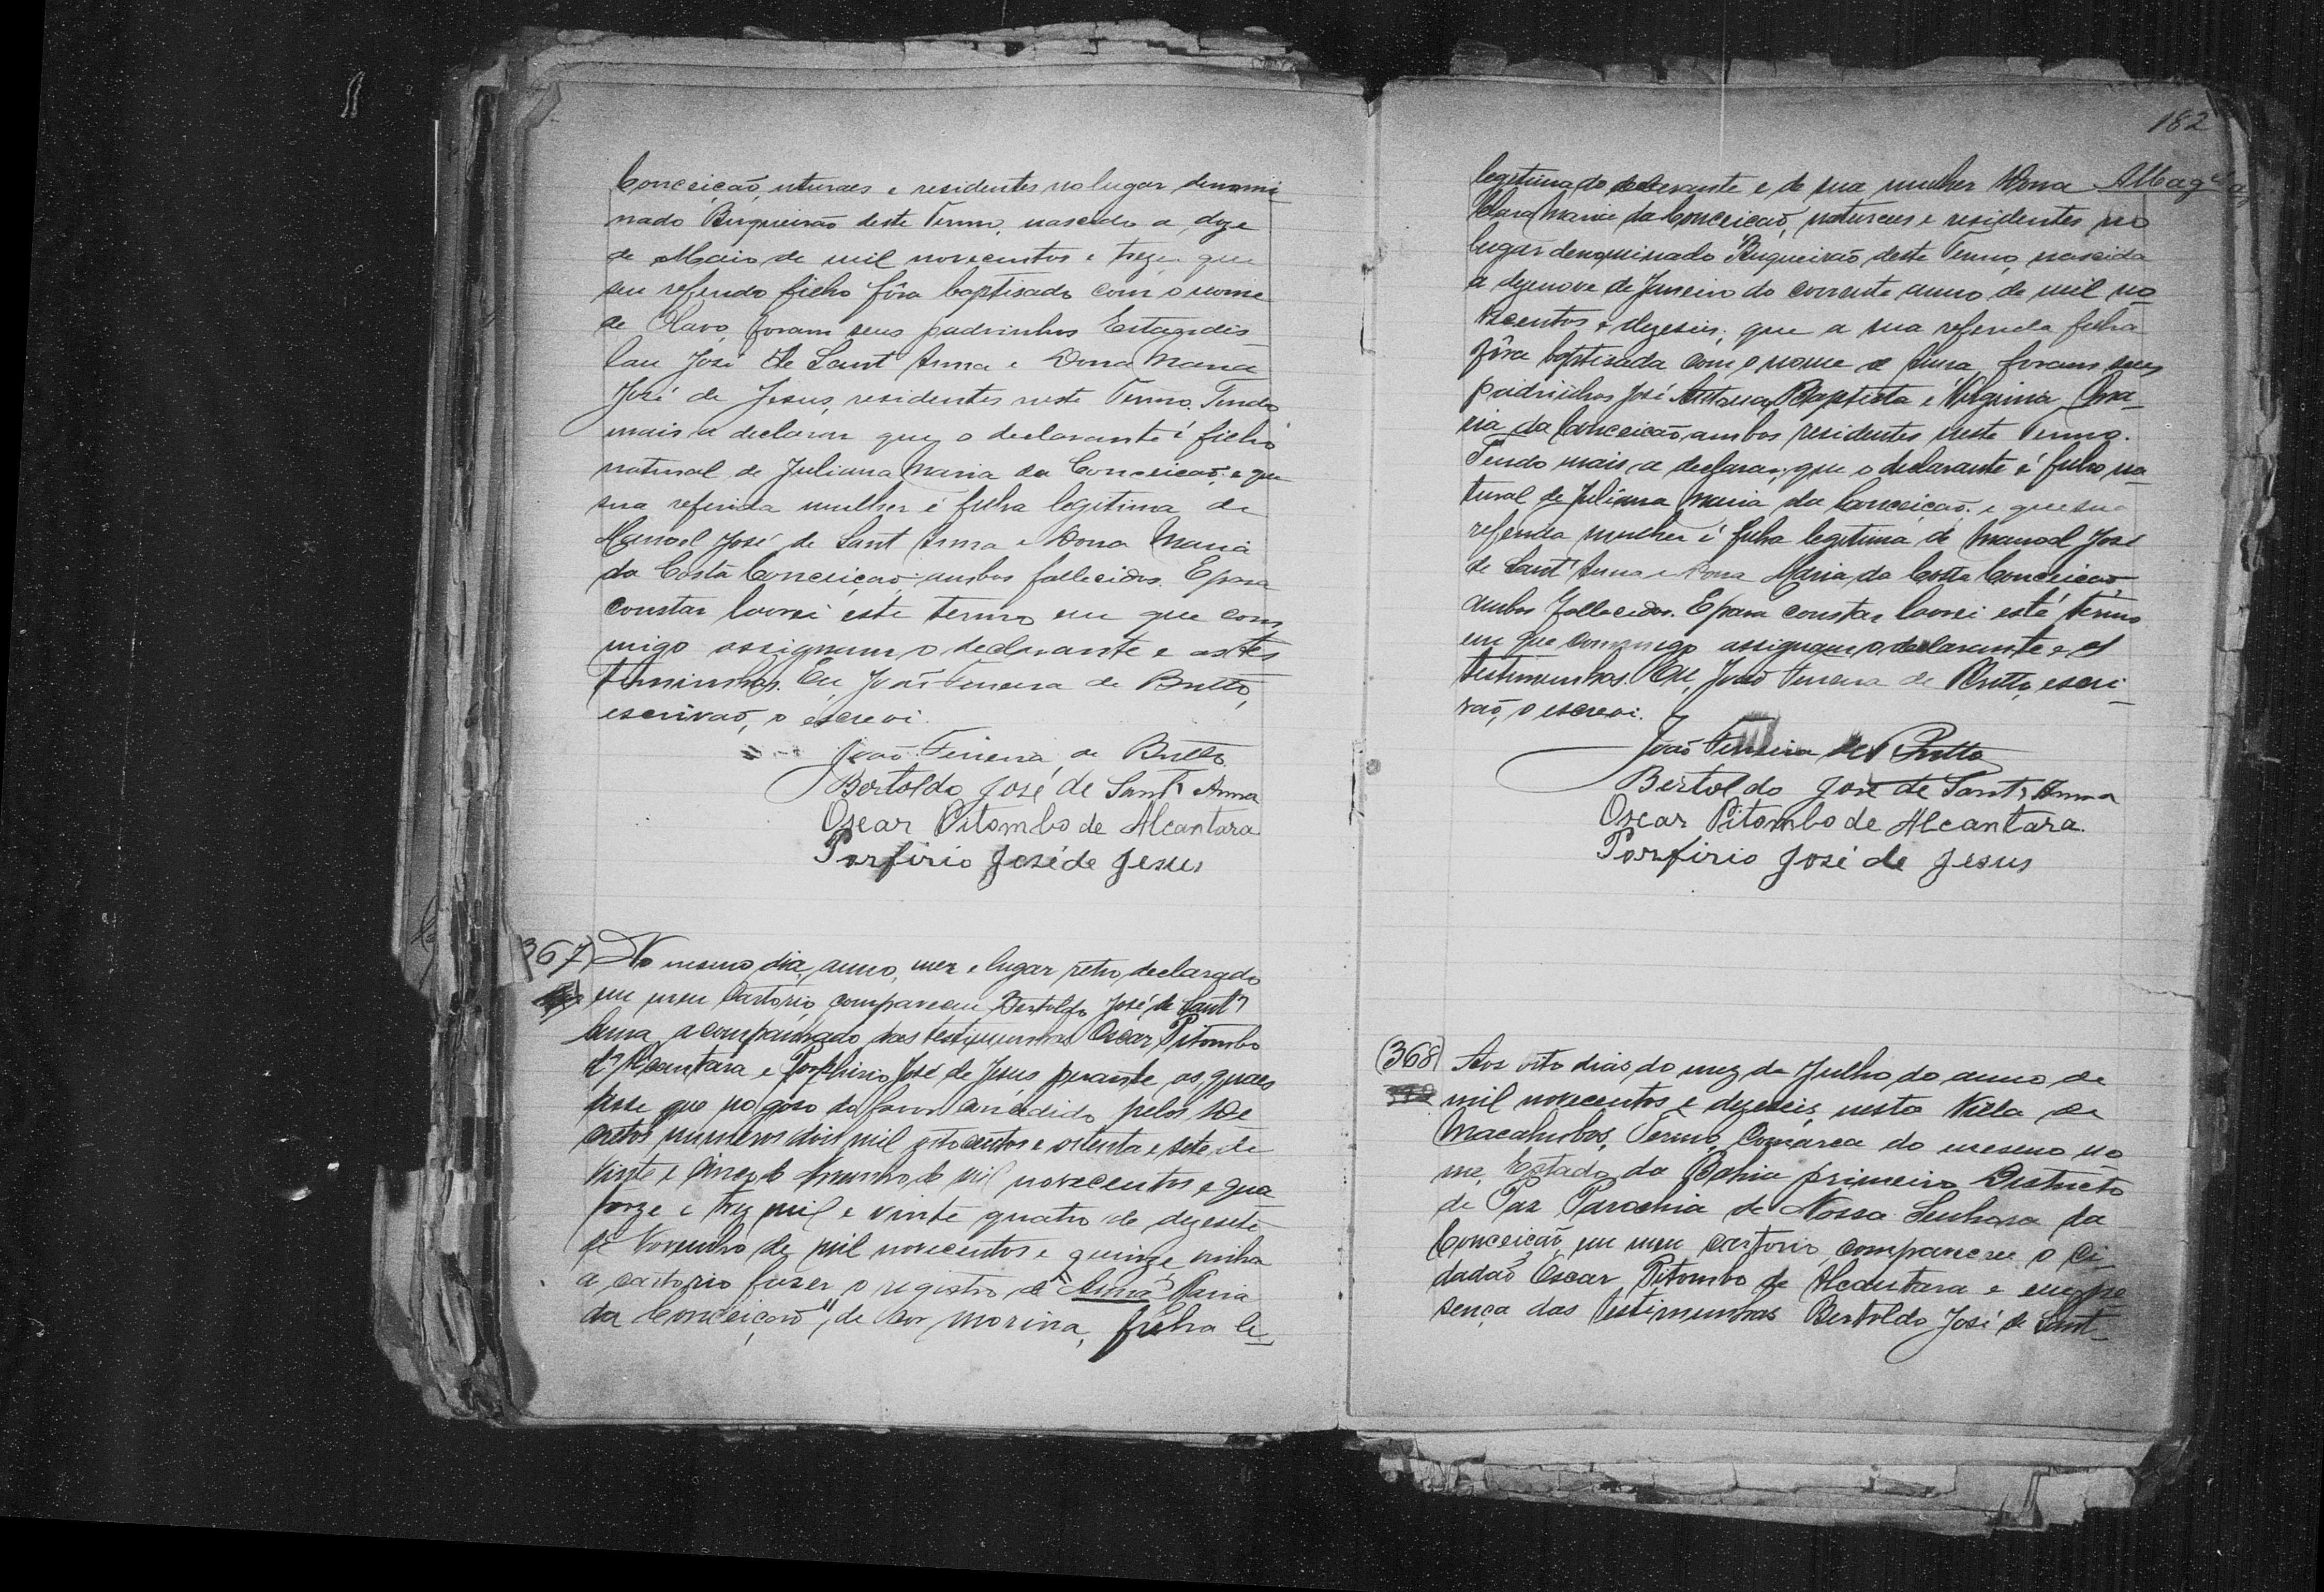 Conceição, nturaes e residentes no lugar denomi
nado Buqueirão deste Termo, nascido a doze
de Maio de mil novecentos e treze, que
seu referido filho fôra baptisado com o nome
de Olavo, foram seus padrinhos
lau José de Sant Anna e Dona Maria
José de Jesus, residentes neste Termo. Tendo
mais a declarar que, o declarante é filho
natural de Juliana Maria da Conceição; e que
sua referida mulher é filha legitima de
Manoel José de Sant Anna e Dona Maria
da Costa Conceição, ambos fallecidos. E para
constar lavrei este termo em que com
migo assignam o declarante e as tes
timunhas. Eu, João Ferreira de Britto,
escrivão, o escrevi.
João Ferreira de Britto
Bertoldo José de Sant' Anna
Oscar Pitombo de Alcantara
Porfirio José de Jesus
367) No mesmo dia, anno, mez e lugar retro declarado
em meu Cartorio, compareceu Bertoldo José de Sant'
Anna, acompanhado das testimunhas Oscar Pitombo
d'Alcantara e Porphirio José de Jesus perante os quaes
disse que no goso do favor concedido pelos De
cretos numeros dois mil oitocentos e oitenta e sete de
vinte e cinco de Novembro de mil novecentos e qua
torze e trez mil e vinte quatro de dezesete
de Novembro de mil novecentos e quinze vinha
a cartorio fazer o registro de "Anna Maria
da Conceição", de cor morena, filha le-
182
legitima do declarante e de sua mulher Dona
Clara Maria da Conceição, naturaes e residentes no
lugar denominado Buqueirão deste Termo, nascida
a dezenove de Janeiro do corrente anno de mil no
vecentos e dezeseis; que a sua referida filha
fôra baptisada com o nome de Anna, foram seus
padrinhos José Baptista e Virginia Ma-
ria da Conceição, ambos residentes neste Termo.
Tendo mais a declarar, que o declarante é filho na
tural de Juliana Maria da Conceição; e que sua
referida mulher é filha legitima de Manoel José
de Sant' Anna e Dona Maria da Costa Conceição,
ambos fallecidos. E para constar lavrei este termo
em que commigo assignam o declarante e as
testimunhas. Eu, João Ferreira de Britto, escri-
vão, o escrevi.
João Ferreira de Britto
Bertoldo José de Sant' Anna
Oscar Pitombo de Alcantara.
Porfirio José de Jesus
(368) Aos oito dias do mez de Julho do anno de
mil novecentos e dezeseis, nesta Villa de
Macahubas, Termo, Comarca do mesmo no
me, Estado da Bahia primeiro Districto
de Paz Parochia de Nossa Senhora da
Conceição, em meu cartorio compareceu o Ci-
dadão Oscar Pitombo de Alcantara e em pre
sença das testimunhas Bertoldo José de Sant-